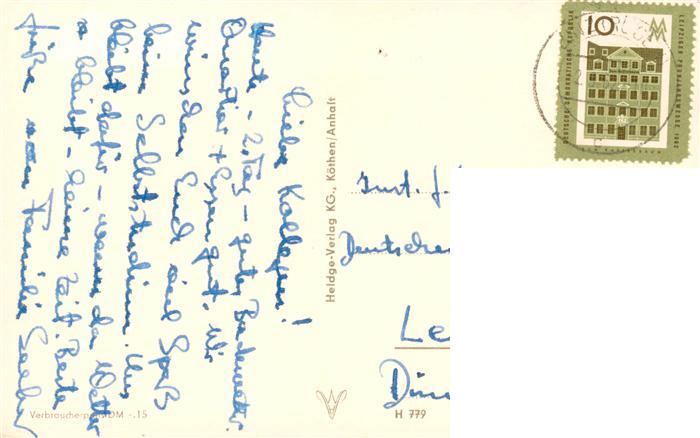 Liebe Kollegen!
Heute - 2. Tag - gutes Badewetter.
Quartier + Essen gut. Wir
wünschen Euch viel Spaß
beim Selbststudium. Uns
bleibt dafür - wenn das Wetter
so bleibt - keine Zeit. Beste
Grüße von Familie
Heldge-Verlag KG., Köthen/Anhalt
Verbraucherpreis DM -.15
H 779
Inst. f.
Deutsche
Le
10
MM
DEUTSCHE DEMOKRATISCHE REPUBLIK
LEIPZIGER FRÜHJAHRSMESSE 1962